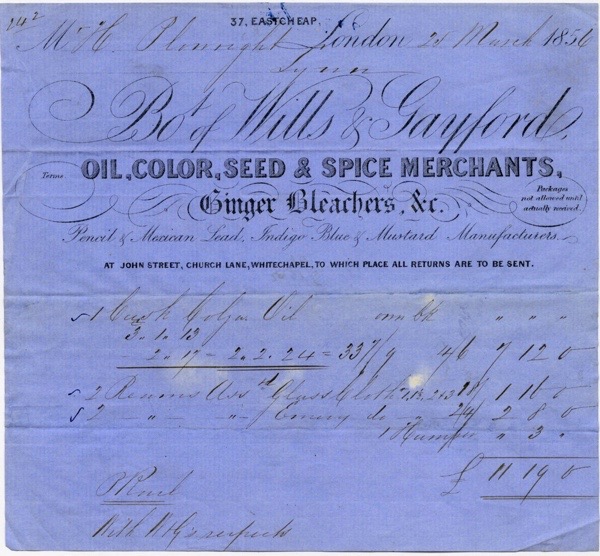 24 2
37, EASTCHEAP.
Mr H. Plowright London 28 March 1856
Lynn
Bot of Wills & Gayford,
Terms
OIL, COLOR, SEED & SPICE MERCHANTS,
Packages not allowed until actually received.
Ginger Bleachers, &c.
Pencil & Mexican Lead, Indigo Blue & Mustard Manufacturers.
AT JOHN STREET, CHURCH LANE, WHITECHAPEL, TO WHICH PLACE ALL RETURNS ARE TO BE SENT.
1 Cask Colza Oil " " "
3. 1. 13
2. 17 = 2. 2. 24 = 33 7/9 4/6 7 12 0
2 Reams Assd Glass Cloth 1 16 0
2 " " Emery do 24/ 2 8 0
1 Hamper " 3 "
£ 11 19 0
With W & G's respects